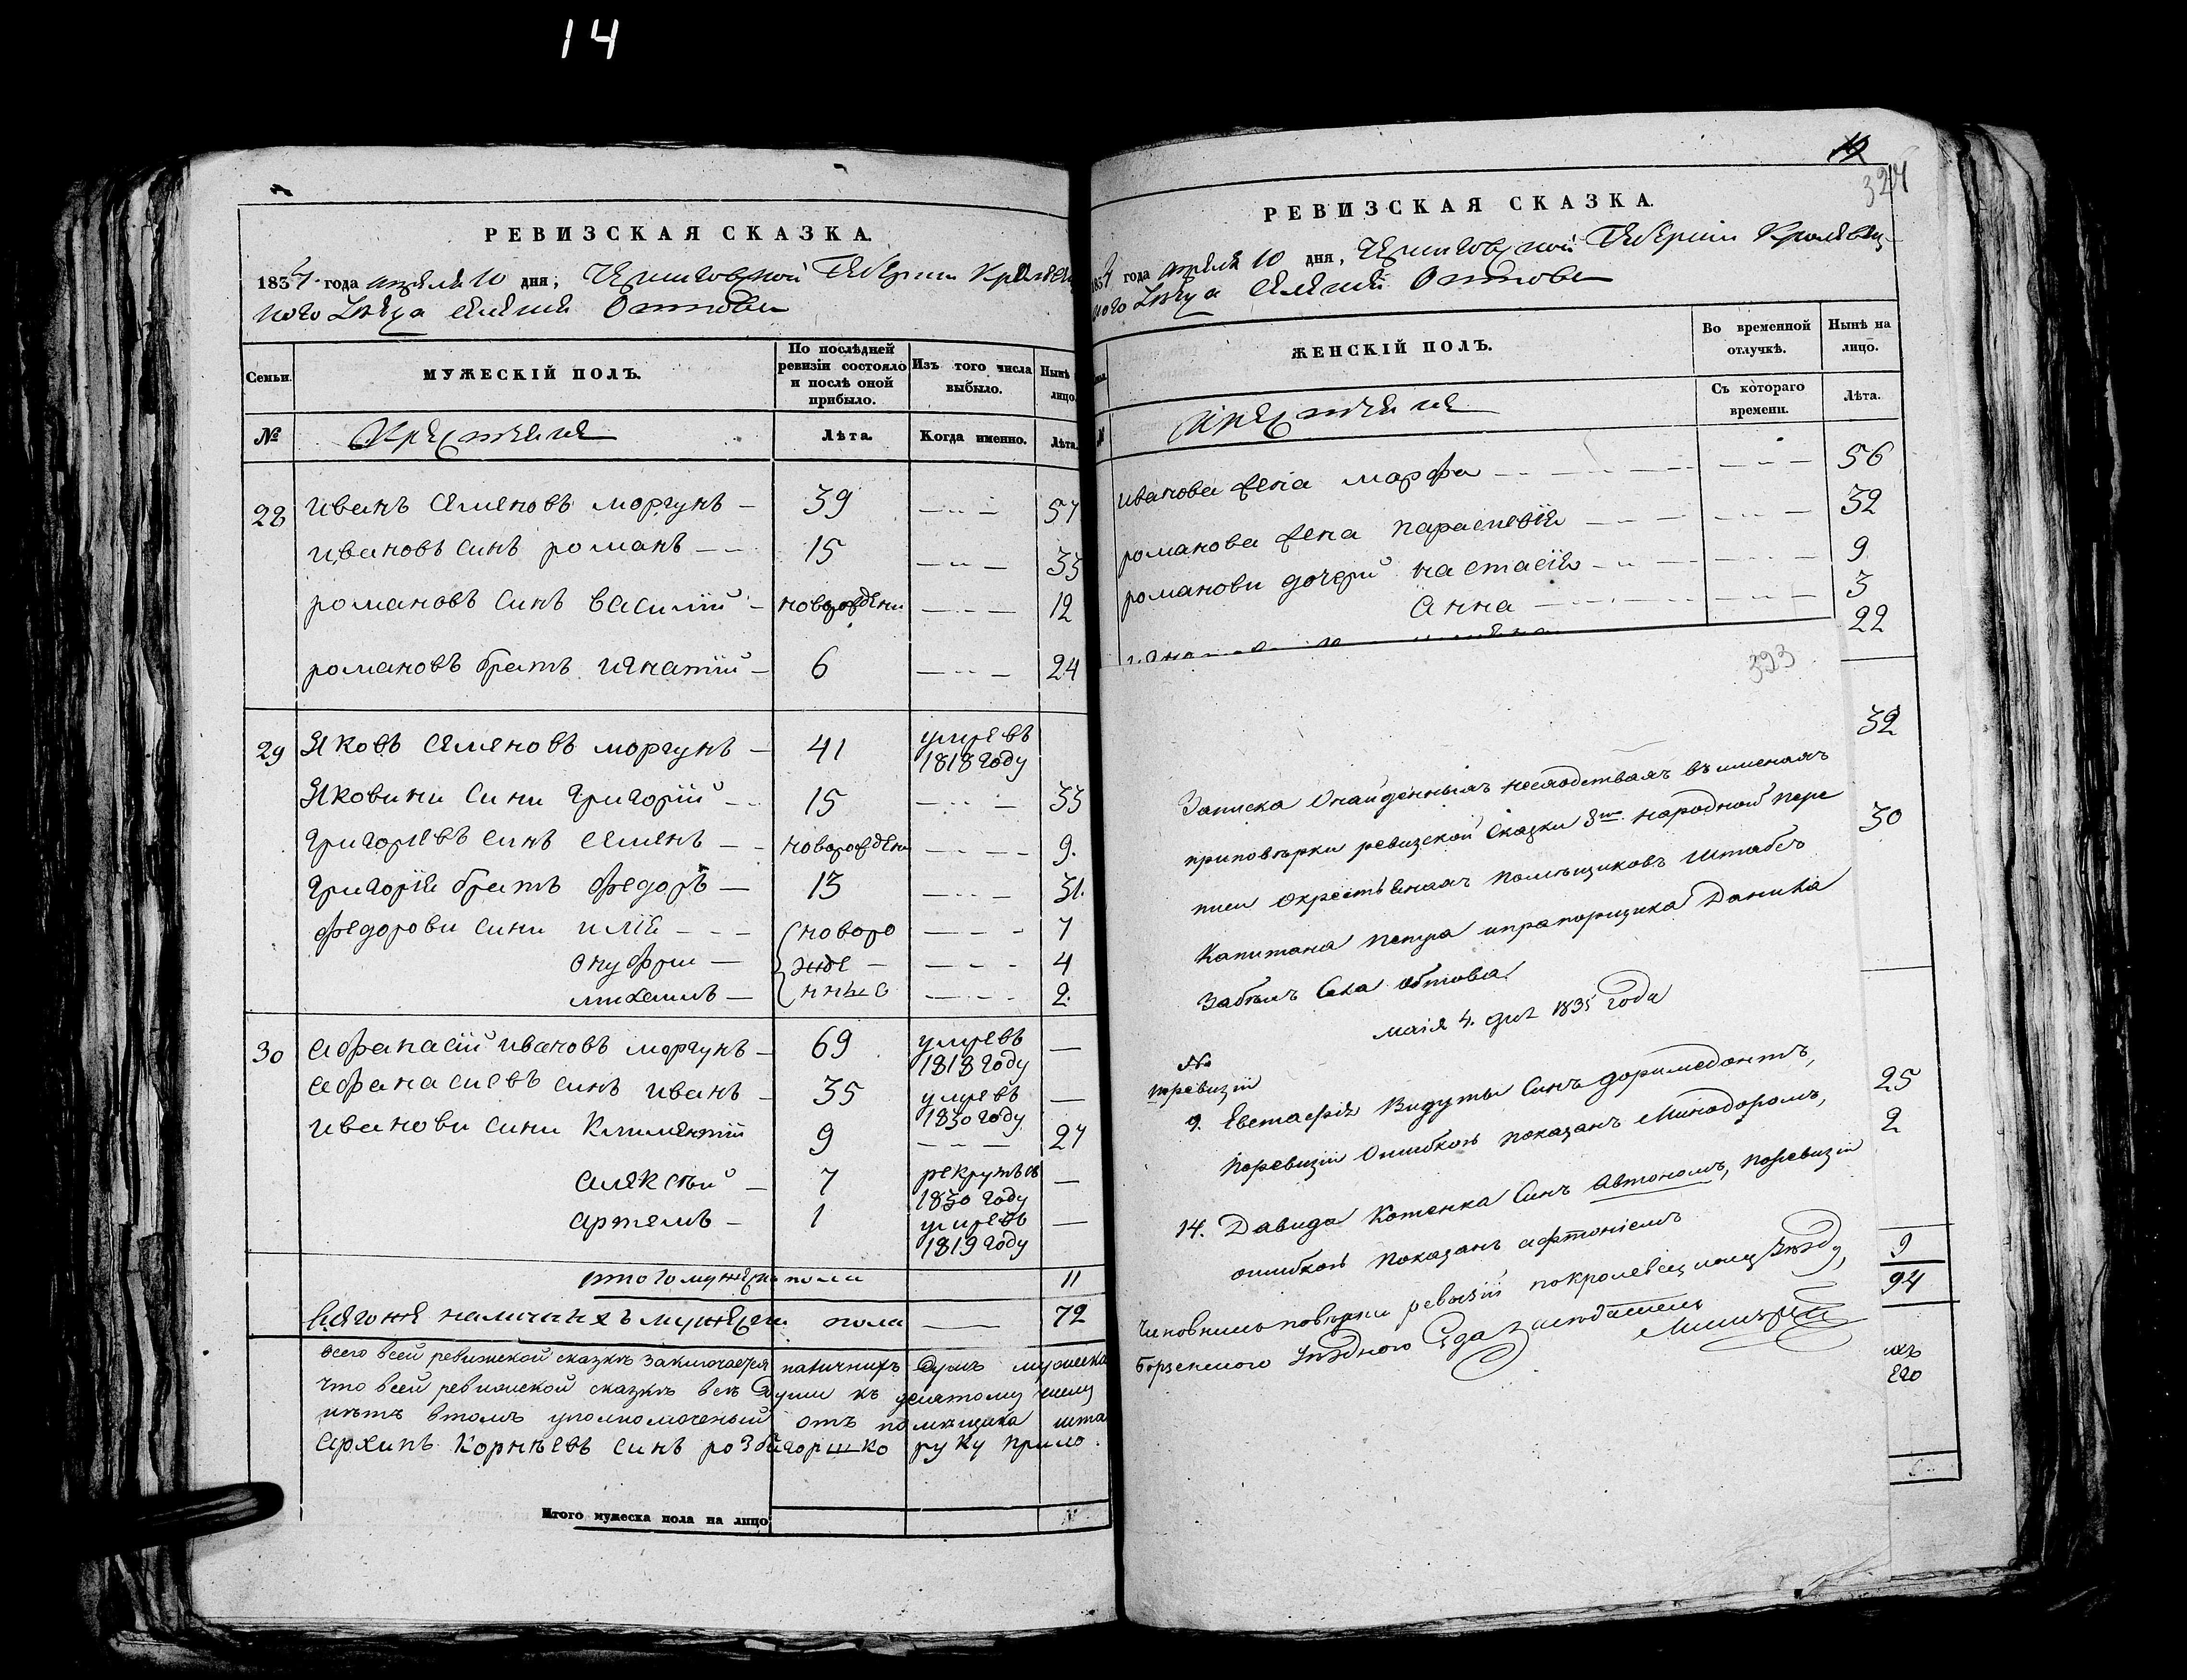 14
РЕВИЗСКАЯ СКАЗКА.
1834 года апреля 10 дня, Черниговской Губернии Кролевец
кого Уезда селения Оттова
Семьи. МУЖЕСКІЙ ПОЛЪ. По послѣдней ревизіи состояло и послѣ оной прибыло. Изъ того числа выбыло. Нынѣ лицо.
№ Крестяне Лѣта. Когда именно. Лѣта.
28 иванъ семеновъ моргунъ 39 57
ивановъ синъ романъ 15 33
романовъ синъ василій новорожденн 12
романовъ братъ игнатій 6 24
29 Яковъ семеновъ моргунъ 41 умревъ 1818 году
Яковини сини григорій 15 33
григориевъ синъ семенъ новорожден 9.
григорія братъ федоръ 13 31.
федорови сини илія (новоро 7
онуфрии жде 4
михаилъ нные 2.
30 афанасій ивановъ моргунъ 69 умревъ 1818 году
афанасиевъ синъ иванъ 35 умревъ 1830 году
иванови сини климентій 9 27
алексѣй 7 рекрутъ въ 1830 году
артемъ 1 умревъ 1819 году
итого мужеска пола 11
всегоже наличнихъ мужеска пола 72
всего всей ревижской сказкѣ заключается наличнихъ душъ мужеска
что всей ревижской сказкѣ всѣ души къ
нѣтъ втомъ уполномоченый отъ помѣщика шта
архипъ Корнѣевъ синъ розбигоршко руку прило
Итого мужеска пола на лицо
324
РЕВИЗСКАЯ СКАЗКА.
1834 года апреля 10 дня, Черниговской Губерніи Кролевец
кого Уезда селения Оттова
ЖЕНСКІЙ ПОЛЪ. Во временной отлучкѣ. Нынѣ на лицо.
№ Крестяне Съ котораго времени. Лѣта.
иванова жена марфа 56
романова жена параскевія 32
романови дочери настасія 9
анна 3
22
323
32
30
25
2
9
94
Записка Онайденныхъ несходствахъ въ именахъ
приповѣрки ревизской Сказки 8й народной пере
писи Окрестьянахъ помѣщиковъ Штабсъ
Капитана петра ипрапорщика Данила
Забѣлъ Села Обтова.
маія 4. дня 1835 года
№
поревизіи
9. Евстафія Видуты Синъ доримедонтъ,
поревизіи Ошибкою показанъ Минодоромъ,
14. Давида Котенка Синъ Автономъ, поревизіи
ошибкою показанъ афтоніемъ
Чиновникъ повѣрки ревизіи покролевецкому уѣзду,
Борзенского уѣздного Суда заседатель